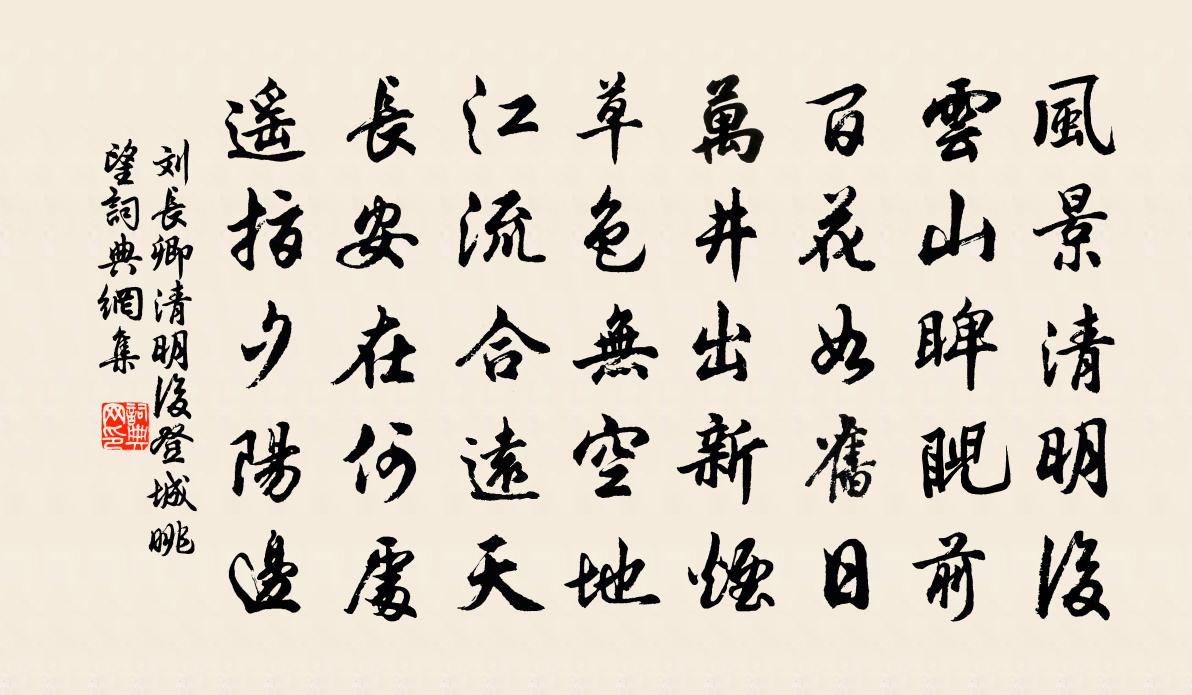 風景清明後
雲山睥睨前
百花如舊日
萬井出新煙
草色無空地
江流合遠天
長安在何處
遥指夕陽邊
刘長卿清明後登城眺
望詞典網集
詞典
网印